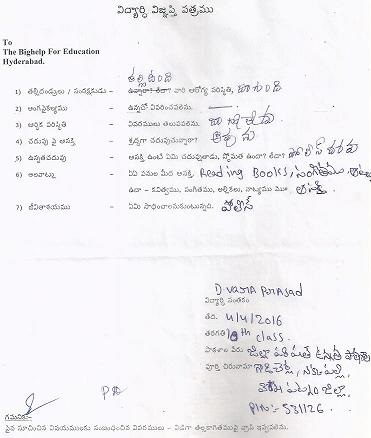 విద్యార్థి విజ్ఞప్తి పత్రము
To
The Bighelp For Education
Hyderabad.
తల్లి ఉంది
1) తల్లిదండ్రులు / సంరక్షకుడు - ఉన్నారా? లేదా? వారి ఆరోగ్య పరిస్థితి, బాగుంది
2) అంగవైకల్యము - ఉన్నచో వివరించవలెను.
3) ఆర్థిక పరిస్థితి - వివరములు తెలుపవలెను. బాగా లేదు
4) చదువు పై ఆసక్తి - శ్రద్ధగా చదువుచున్నారా?
5) ఉన్నతచదువు - ఆసక్తి ఉంటే ఏమి చదువుతాడు, స్తోమత ఉందా? లేదా?
6) అలవాట్లు - ఏమి పనుల మీద ఆసక్తి, Reading Books, సంగీతము,
ఉదా - కవిత్వము, సంగీతము, అల్లికలు, నాట్యము మొ ఆసక్తి
7) జీవితాశయము - ఏమి సాధించాలనుకుంటున్నది. పోలీస్
D Vara Prasad
విద్యార్థి సంతకం
తేది. 4/4/2016
తరగతి 10th class.
పాఠశాల పేరు జిల్లా పరిషత్ ఉన్నత
పూర్తి చిరునామా నక్కపల్లి,
జిల్లా,
PIN:- 531126.
గమనిక:-
పైన సూచించిన విషయములకు సంబంధించిన వివరములు - విడిగా తెల్లకాగితముపై వ్రాసి ఇవ్వవలెను.